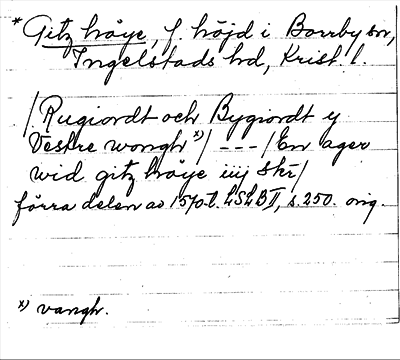 * Gitz höye, f. höjd i Borrby sn,
Ingelstads hd, Krist. l.
/Rugiordt och Bygiordt y
Vestre wongh x)/ --- /En ager
wid gitz höye iiij Skr/
förra delen av 1570-t. LSLB II, s. 250. orig.
x) vangh.